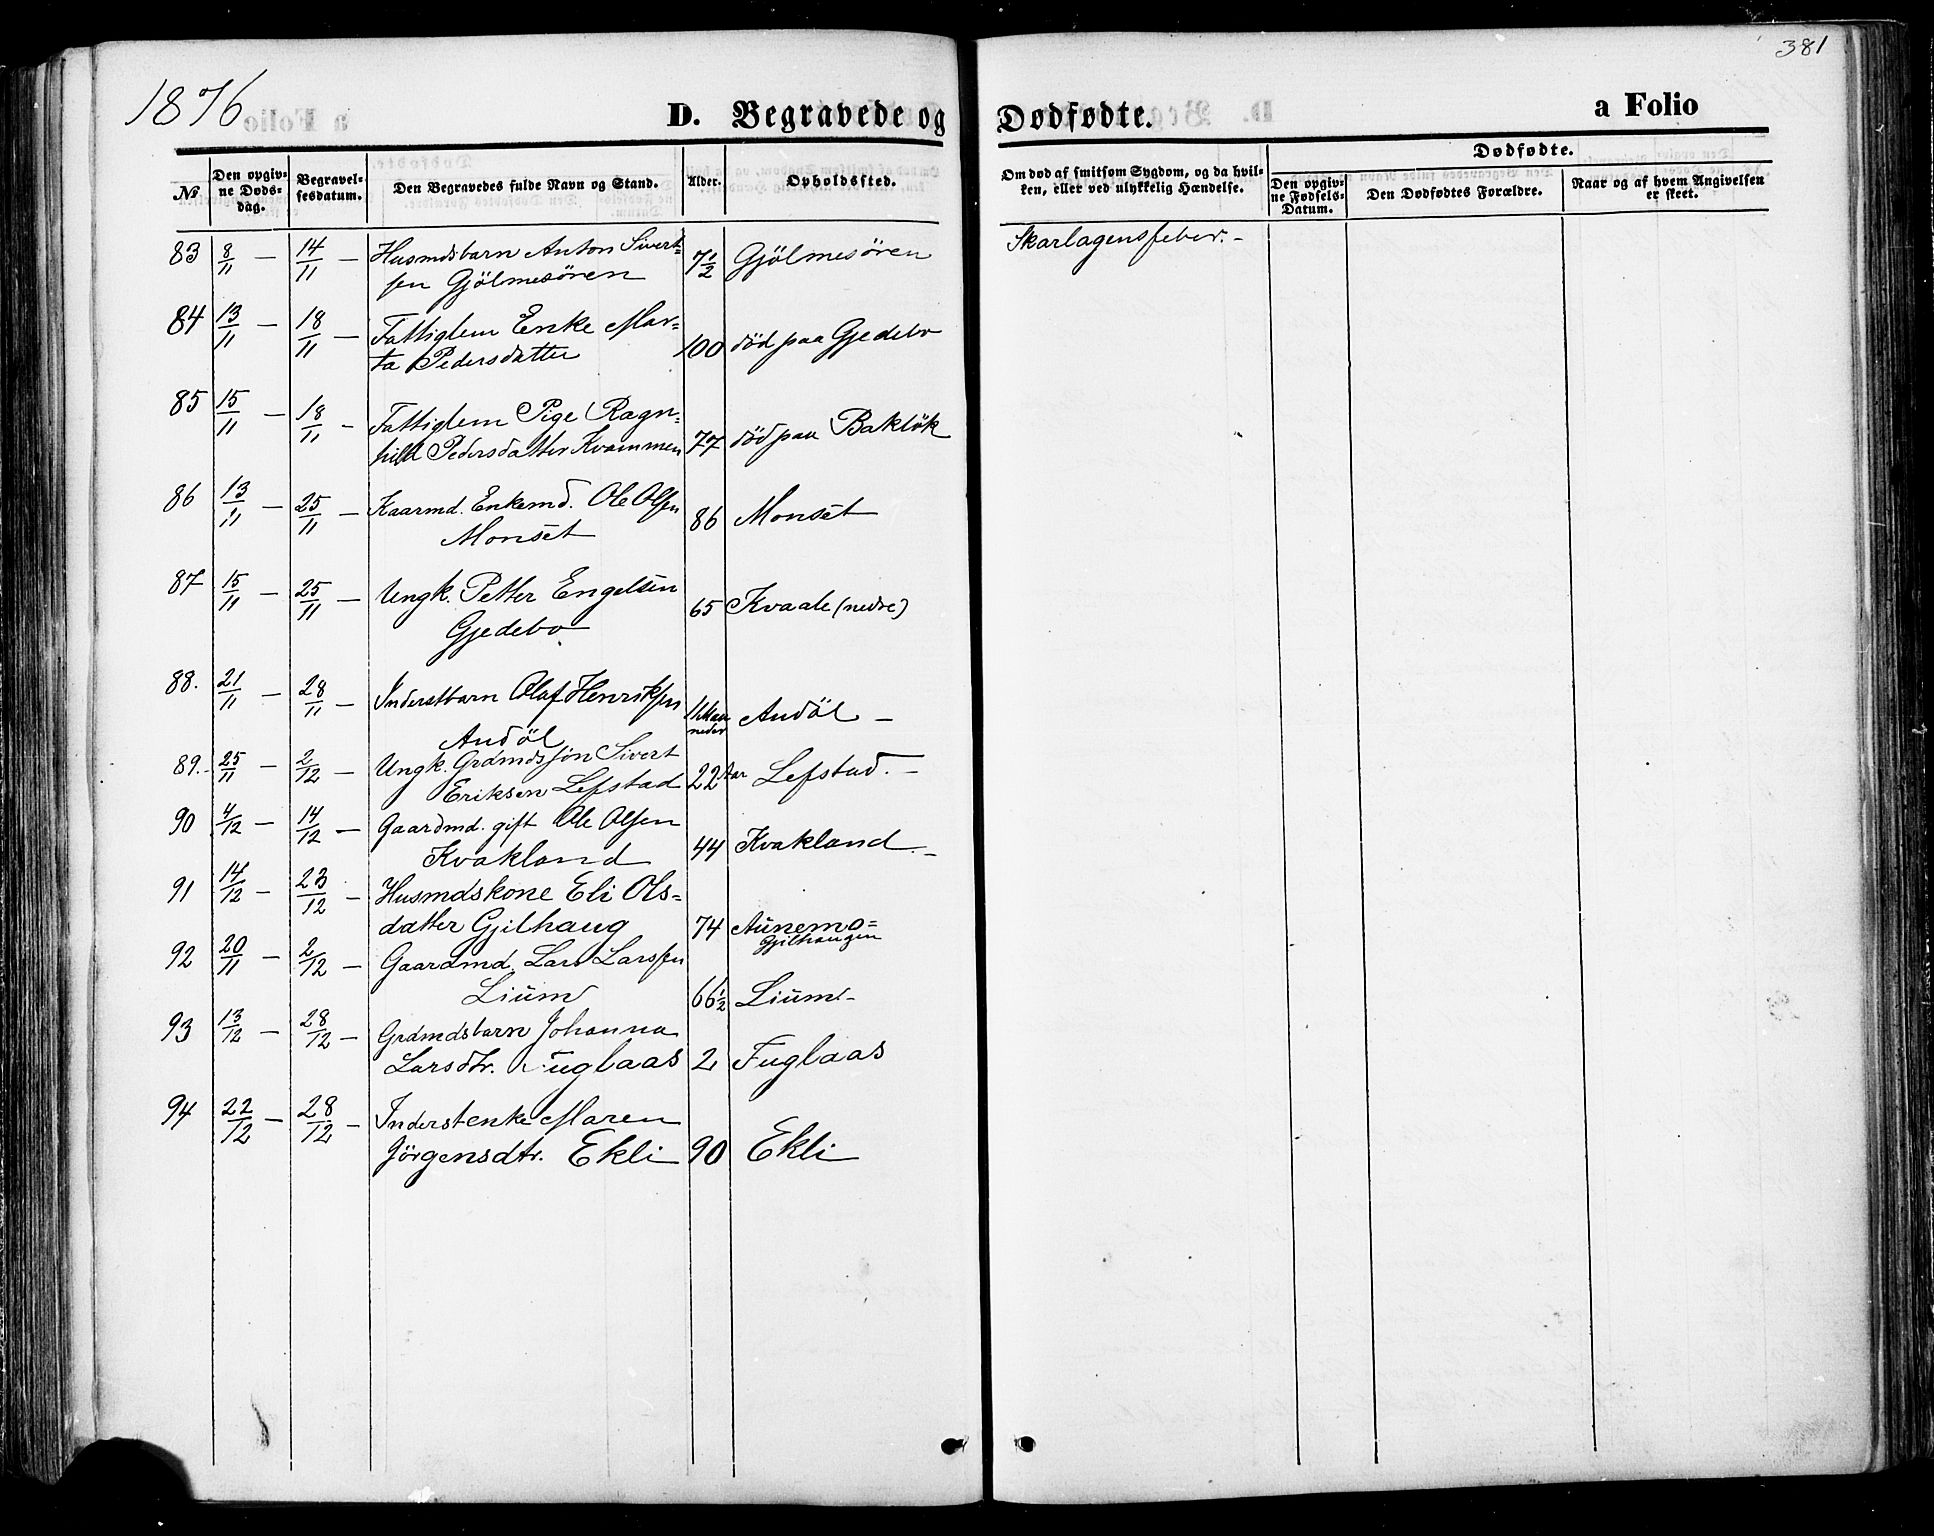 381
1876
D. Begravede og Dødfødte.
a Folio
Dødfødte.
№
Den opgiv-
ne Døds-
dag.
Begravel-
sesdatum.
Den Begravedes fulde Navn og Stand.
Alder.
Opholdssted.
Om død af smitsom Sygdom, og da hvil-
ken, eller ved ulykkelig Hændelse.
Den opgiv-
ne Fødsels-
Datum.
Den Dødfødtes Forældre.
Naar og af hvem Angivelsen
er skeet.
83 8/11 — 14/11 — Husmdsbarn Anton Sivert- 7½ Gjölmesören Skarlagensfeber. -
sen Gjölmesören
84 13/11 — 18/11 — Fattiglem Enke Mar- 100 död paa Gjedebo
ta Pedersdatter
85 15/11 — 18/11 - Fattiglem Pige Ragn- 77 död paa Baklök
hild Pedersdatter Kvammen
86 13/11 — 25/11 — Kaarmd. Enkemd. Ole Olsen 86 Monset
Monset
87 15/11 — 25/11 — Ungk. Petter Engelsen 65 Kvaale (nedre)
Gjedebo
88. 21/11 — 28/11 — Inderstbarn Olaf Henriksen 11 Maa Andöl -
neder
Andöl
89. 25/11 — 2/12 — Ungk. Grdmdssön Sivert 22 Aar Lefstad. -
Eriksen Lefstad
90 4/12 — 14/12 — Gaardmd. gift Ole Olsen 44 Kvakland. -
Kvakland
91 14/12 — 23/12 — Husmdskone Eli Ols- 74 Aunemo-
datter Gjilhaug Gjilhaugen
92 20/11 — 2/12 — Gaardmd. Lars Larssen 66½ Lium -
Lium
93 13/12 — 28/12 — Grdmdsbarn Johanna 2 Fuglaas
Larsdtr. Fuglaas
94 22/12 — 28/12 — Inderstenke Maren 90 Ekli
Jörgensdtr. Ekli